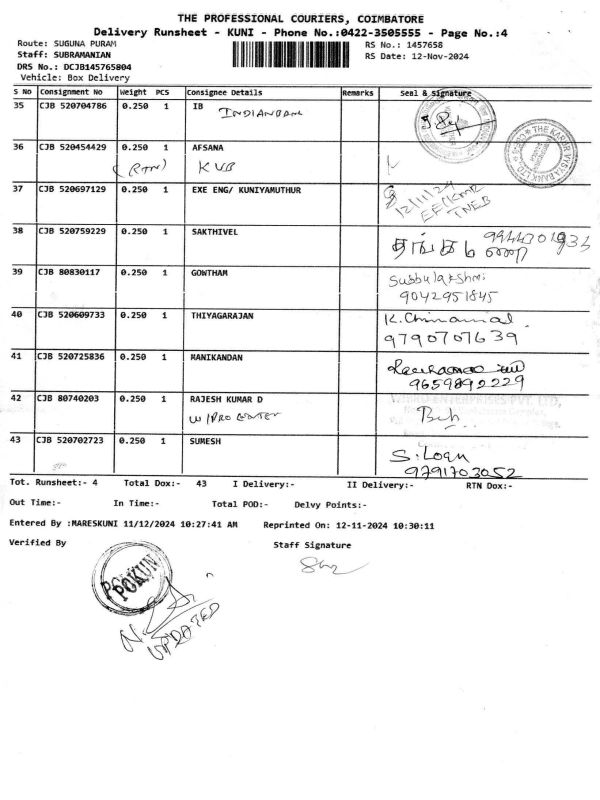 THE PROFESSIONAL COURIERS, COIMBATORE
Delivery Runsheet - KUNI - Phone No.:0422-3505555 - Page No.:4
Route: SUGUNA PURAM
RS No.: 1457658
Staff: SUBRAMANIAN
RS Date: 12-Nov-2024
DRS No.: DCJB145765804
Vehicle: Box Delivery
S NO Consignment No Weight PCS Consignee Details Remarks Seal & Signature
35 CJB 520704786 0.250 1 IB
INDIANBANK
36 CJB 520454429 0.250 1 AFSANA
(RTN) KVB
THE KARUR VYSYA BANK LTD.
37 CJB 520697129 0.250 1 EXE ENG/ KUNIYAMUTHUR
12/11/24
EE/KMR
TNEB
38 CJB 520759229 0.250 1 SAKTHIVEL
9944301934
39 CJB 80830117 0.250 1 GOWTHAM
Subbulakshmi
9042951845
40 CJB 520609733 0.250 1 THIYAGARAJAN
K.Chinnamal
9790707639
41 CJB 520725836 0.250 1 MANIKANDAN
9659892229
42 CJB 80740203 0.250 1 RAJESH KUMAR D
ENTERPRISES PVT. LTD,
WIPRO CENTER
43 CJB 520702723 0.250 1 SUMESH
S. Logu
9791703052
Tot. Runsheet:- 4 Total Dox:- 43 I Delivery:- II Delivery:- RTN Dox:-
Out Time:- In Time:- Total POD:- Delvy Points:-
Entered By :MARESKUNI 11/12/2024 10:27:41 AM Reprinted On: 12-11-2024 10:30:11
Verified By Staff Signature
POKUN
UPDATED